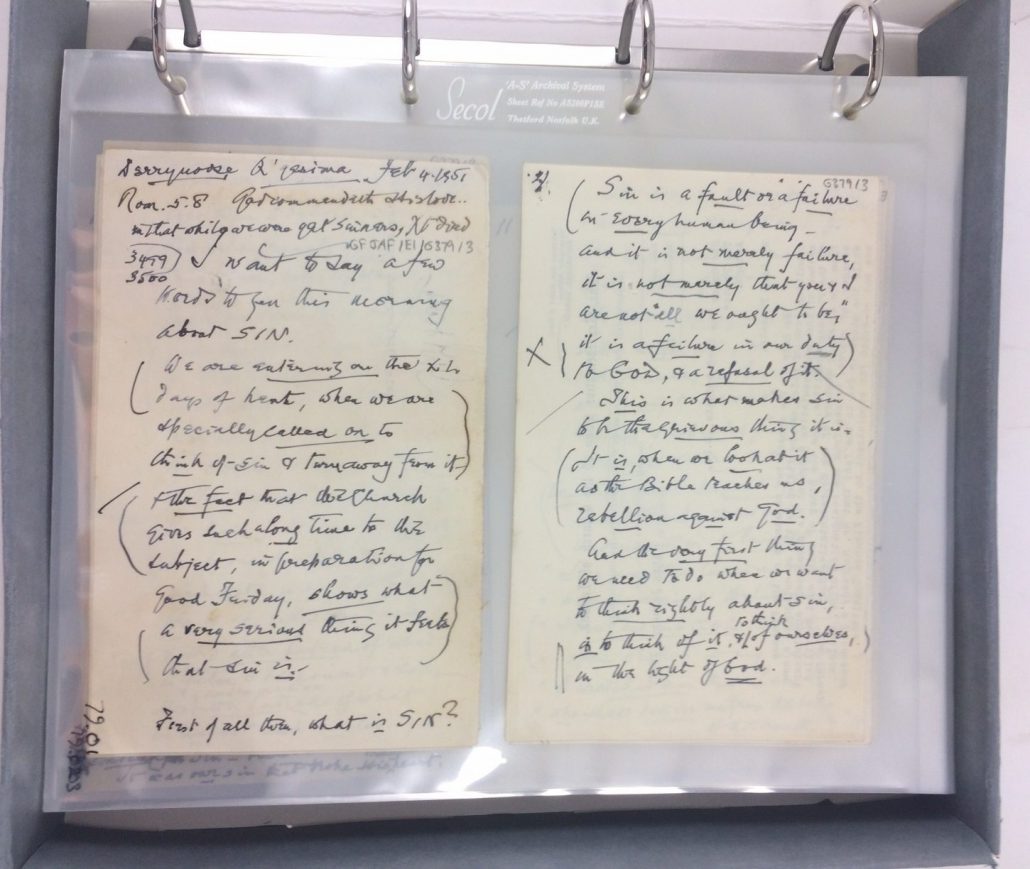 Secol
'A-S' Archival System
Sheet Ref No
Thetford Norfolk U.K.
Derrynoose Q'gesima Feb 4. 1951
Rom. 5.8 God commendeth His love..
in that while we were yet sinners, Xt died
GF JAF/E1/G379/3
3499
3500
I want to say a few
words to you this morning
about SIN.
We are entering on the
days of Lent, when we are
specially called on to
think of sin & turn away from it
& the fact that the Church
gives such a long time to the
subject, in preparation for
Good Friday, shows what
a very serious thing it feels
that sin is.
First of all then, what is SIN?
2/.
G379/3
Sin is a fault or "a failure
in every human being.
and it is not merely failure,
it is not merely that you & I
are not "all we ought to be,"
X
it is a failure in our duty
to GOD, & a refusal of it.
This is what makes sin
to be the grievous thing it is.
It is, when we look at it
as the Bible teaches us,
rebellion against God.
And the very first thing
we need to do when we want
to think rightly about sin,
is to think of it, & to think of ourselves,
in the light of God.
it was our sin that broke His heart.